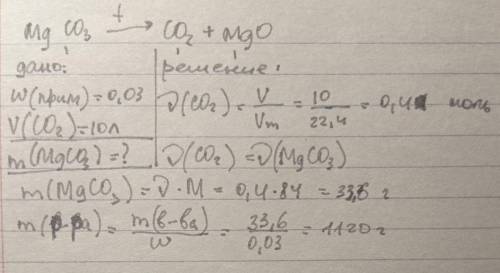 MgCO₃ –t→ CO₂ + MgO
дано:
w(прим)=0,03
V(CO₂)=10л
m(MgCO₃)=?
решение:
ν(CO₂)=V/Vm=10/22,4=0,4 моль
ν(CO₂)=ν(MgCO₃)
m(MgCO₃)=ν·M=0,4·84=33,6 г
m(р-ра)=m(в-ва)/w=33,6/0,03=1120г